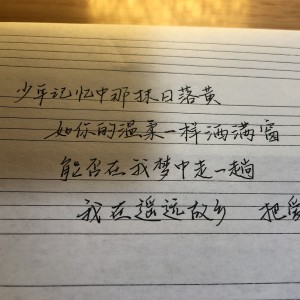 少年记忆中那抹日落黄
如你的温柔一样洒满窗
能否在我梦中走一趟
我在遥远故乡 把